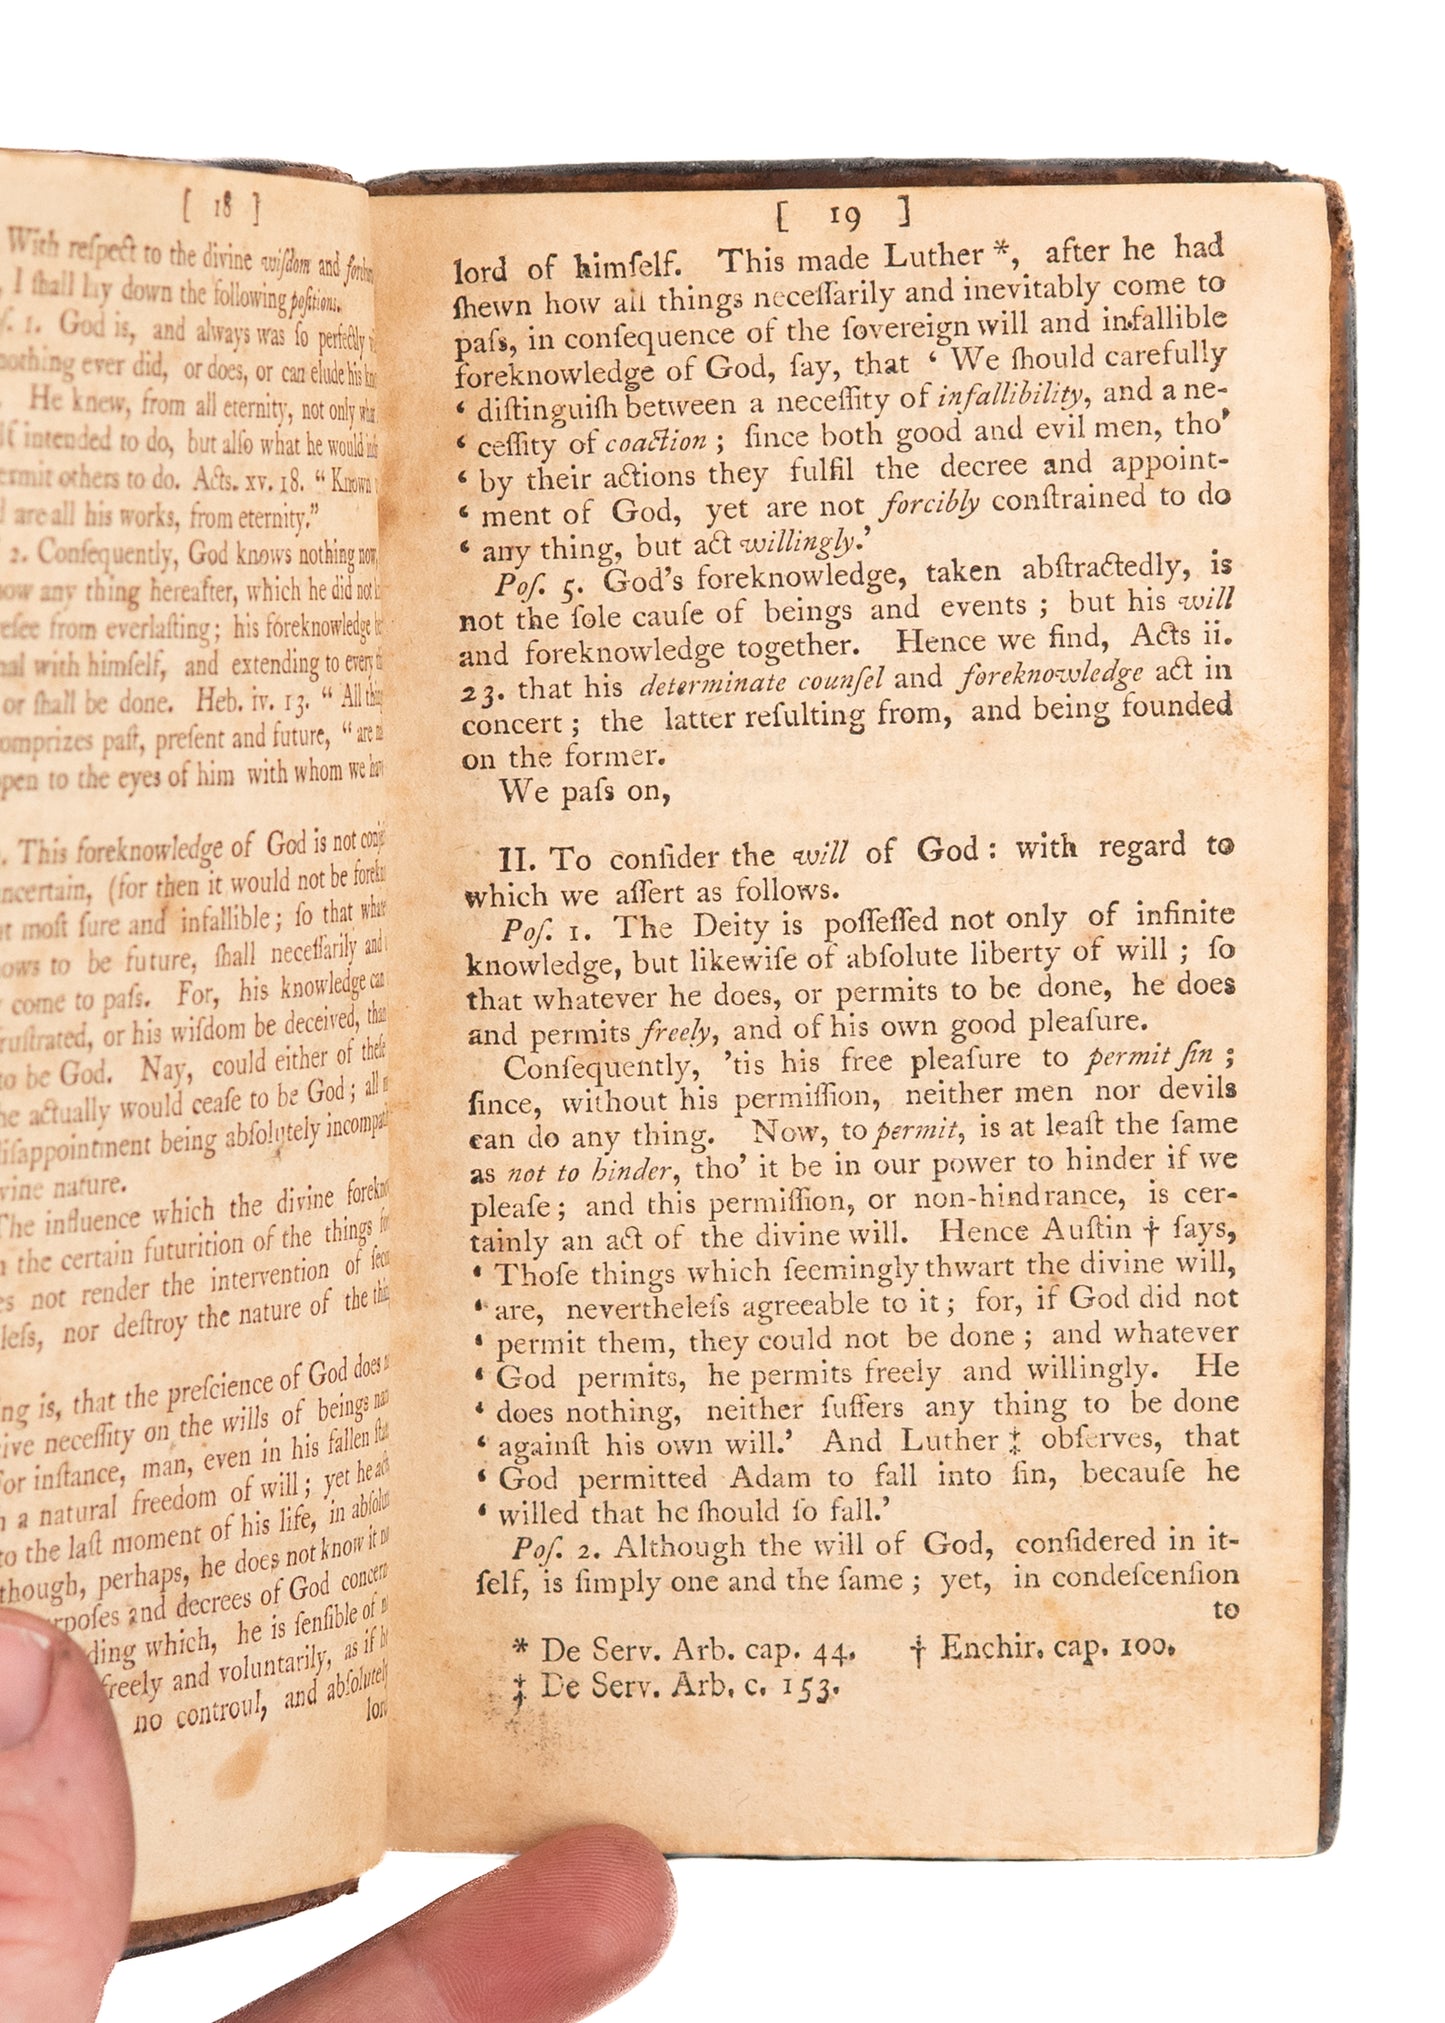 [ 18 ]
With reſpect to the divine wiſdom and
I ſhall lay down the following poſitions.
1. God is, and always was ſo perfectly
nothing ever did, or does, or can elude his
He knew, from all eternity, not only what
intended to do, but alſo what he would
permit others to do. Acts. xv. 18. “ Known
are all his works, from eternity.”
2. Conſequently, God knows nothing now,
any thing hereafter, which he did not
from everlaſting; his foreknowledge
with himſelf, and extending to every
or ſhall be done. Heb. iv. 13. “ All
comprizes paſt, preſent and future, “ are
open to the eyes of him with whom we have
This foreknowledge of God is not
uncertain, (for then it would not be
moſt ſure and infallible; ſo that
to be future, ſhall neceſſarily and
come to paſs. For, his knowledge can
fruſtrated, or his wiſdom be deceived,
to be God. Nay, could either of theſe
he actually would ceaſe to be God; all
diſappointment being abſolutely
divine nature.
The influence which the divine
the certain futurition of the things
not render the intervention of
nor deſtroy the nature of the
is, that the preſcience of God does
neceſſity on the wills of beings
For inſtance, man, even in his fallen
a natural freedom of will; yet he acts
to the laſt moment of his life, in
though, perhaps, he does not know it
and decrees of God
which, he is ſenſible of
freely and voluntarily, as if he
no controul, and abſolutely
lord
[ 19 ]
lord of himſelf. This made Luther *, after he had
ſhewn how all things neceſſarily and inevitably come to
paſs, in conſequence of the ſovereign will and infallible
foreknowledge of God, ſay, that ‘ We ſhould carefully
‘ diſtinguiſh between a neceſſity of infallibility, and a ne-
‘ ceſſity of coaction ; ſince both good and evil men, tho’
‘ by their actions they fulfil the decree and appoint-
‘ ment of God, yet are not forcibly conſtrained to do
‘ any thing, but act willingly.’
Poſ. 5. God’s foreknowledge, taken abſtractedly, is
not the ſole cauſe of beings and events ; but his will
and foreknowledge together. Hence we find, Acts ii.
23. that his determinate counſel and foreknowledge act in
concert ; the latter reſulting from, and being founded
on the former.
We paſs on,
II. To conſider the will of God : with regard to
which we aſſert as follows.
Poſ. 1. The Deity is poſſeſſed not only of infinite
knowledge, but likewiſe of abſolute liberty of will ; ſo
that whatever he does, or permits to be done, he does
and permits freely, and of his own good pleaſure.
Conſequently, ’tis his free pleaſure to permit ſin ;
ſince, without his permiſſion, neither men nor devils
can do any thing. Now, to permit, is at leaſt the ſame
as not to hinder, tho’ it be in our power to hinder if we
pleaſe ; and this permiſſion, or non-hindrance, is cer-
tainly an act of the divine will. Hence Auſtin † ſays,
‘ Thoſe things which ſeemingly thwart the divine will,
‘ are, nevertheleſs agreeable to it ; for, if God did not
‘ permit them, they could not be done ; and whatever
‘ God permits, he permits freely and willingly. He
‘ does nothing, neither ſuffers any thing to be done
‘ againſt his own will.’ And Luther ‡ obſerves, that
‘ God permitted Adam to fall into ſin, becauſe he
‘ willed that he ſhould ſo fall.’
Poſ. 2. Although the will of God, conſidered in it-
ſelf, is ſimply one and the ſame ; yet, in condeſcenſion
to
* De Serv. Arb. cap. 44. † Enchir. cap. 100.
‡ De Serv. Arb. c. 153.